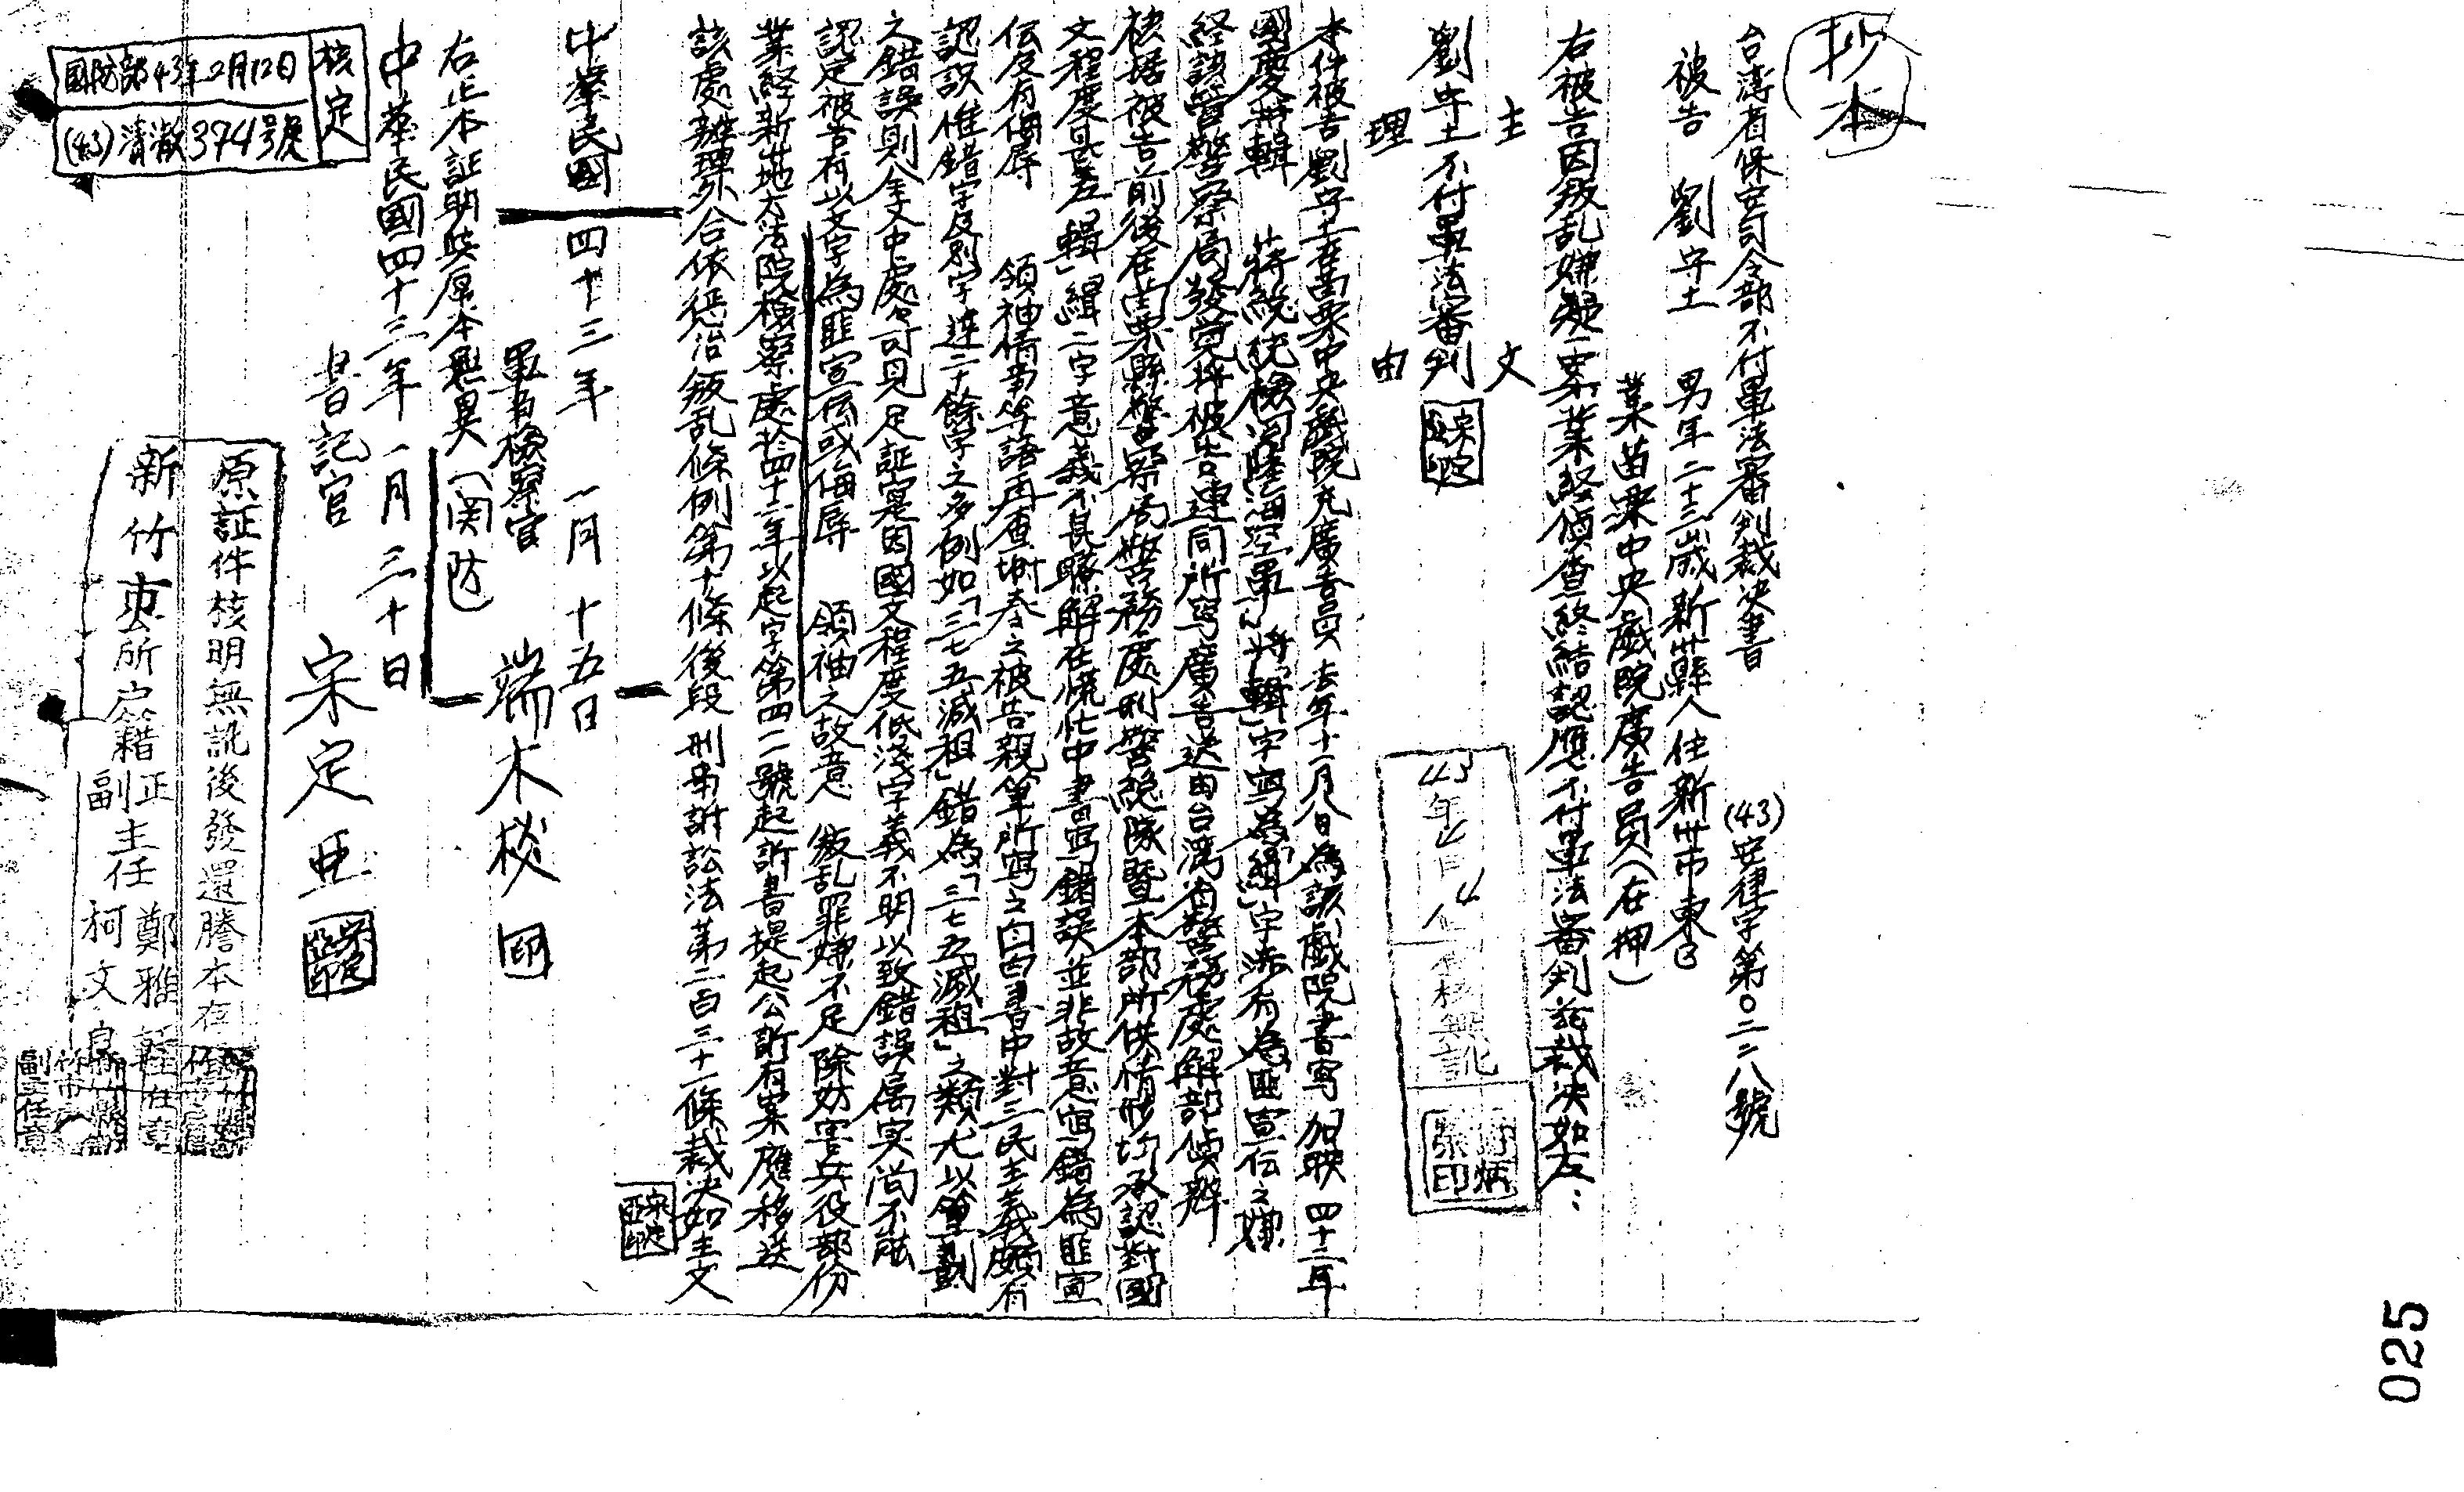 抄本
台灣省保安司令部不付軍法審判裁決書 (43)安律字第〇二二八號
被告 劉守土 男年二十三歲新竹縣人住新竹市東
業苗栗中央戲院廣告員(在押)
右被告因叛乱嫌疑一案業経偵查終結認應不付軍法審判茲裁決如左：
主文
劉守土不付軍法審判
理由
本件被告劉守土在苗栗中央戲院充廣告員去年十一月八日為該戲院書寫加映四十二年
國慶特輯 蔣總統檢閱陸海空軍」將「輯」字寫為「緝」字涉有為匪宣伝之嫌
経該管警察局發覺將被告連同所寫廣告送由台灣省警務處解部偵辦
核据被告前後在苗栗縣警察局警務處刑警總隊暨本部所供情形均承認對國
文程度甚差「輯」「緝」二字意義不甚瞭解在慌忙中書寫錯誤並非故意寫錯為匪宣
伝及有侮辱 領袖情事等語再查附卷之被告親筆所寫之自白書中對三民主義頗有
認識惟錯字及別字達二十餘字之多例如「三七五減租」錯為「三七五滅租」之類尤以筆劃
之錯誤則全文中處處可見足証寔因國文程度低淺字義不明以致錯誤属实尚不能
認定被告有以文字為匪宣伝或侮辱 領袖之故意 叛乱罪嫌不足除妨害兵役部份
業経新竹地方法院檢察處於四十二年以起字第四二號起訴書提起公訴有案應移送
該處辦理外合依懲治叛乱條例第十條後段刑事訴訟法第二百三十一條裁決如主文
中華民國四十三年一月十五日
軍事檢察官 端木棪 印
右正本証明與原本無異(関防)
中華民國四十三年一月三十日
書記官 宋定亜
核定
國防部43年2月12日
(43)清澈374號
原証件核明無訛後發還謄本存
新竹市所户籍正副主任 鄭雅 柯文良
43年 月 日
核無訛
025